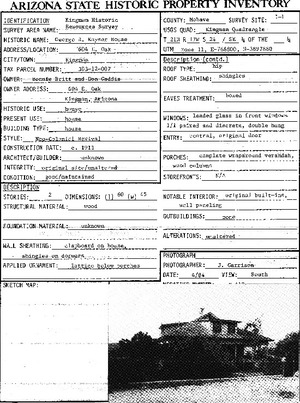 ARIZONA STATE HISTORIC PROPERTY INVENTORY
IDENTIFICATION Kingman Historic
SURVEY AREA NAME: Resources Survey
HISTORIC NAME: George A. Kayser House
ADDRESS/LOCATION: 604 E. Oak
CITY/TOWN: Kingman
TAX PARCEL NUMBER:
OWNER: Britt and Don Geddis
OWNER ADDRESS: 604 E. Oak
Kingman, Arizona
HISTORIC USE: house
PRESENT USE: house
BUILDING TYPE: house
STYLE: Neo-Colonial Revival
CONSTRUCTION DATE: c. 1911
ARCHITECT/BUILDER: unknown
INTEGRITY: original site/unaltered
CONDITION: good/maintained
DESCRIPTION
STORIES: 2 DIMENSIONS: (l) 60 (w) 45
STRUCTURAL MATERIAL: wood
FOUNDATION MATERIAL: unknown
WALL SHEATHING: clapboard on house,
shingles on dormers
APPLIED ORNAMENT: lattice below porches
SKETCH MAP:
COUNTY: Mohave SURVEY SITE:
USGS QUAD: Kingman Quadrangle
Description (contd.)
ROOF TYPE: hip
ROOF SHEATHING: shingles
EAVES TREATMENT: boxed
WINDOWS: leaded glass in front windows
1/1 paired and discrete, double hung
ENTRY: central, original door
PORCHES: complete wraparound verandah,
wood columns
STOREFRONTS: N/A
NOTABLE INTERIOR: original built-ins,
wall paneling
OUTBUILDINGS: none
ALTERATIONS: unaltered
PHOTOGRAPH
PHOTOGRAPHER: J. Garrison
DATE: 4/84 VIEW: South